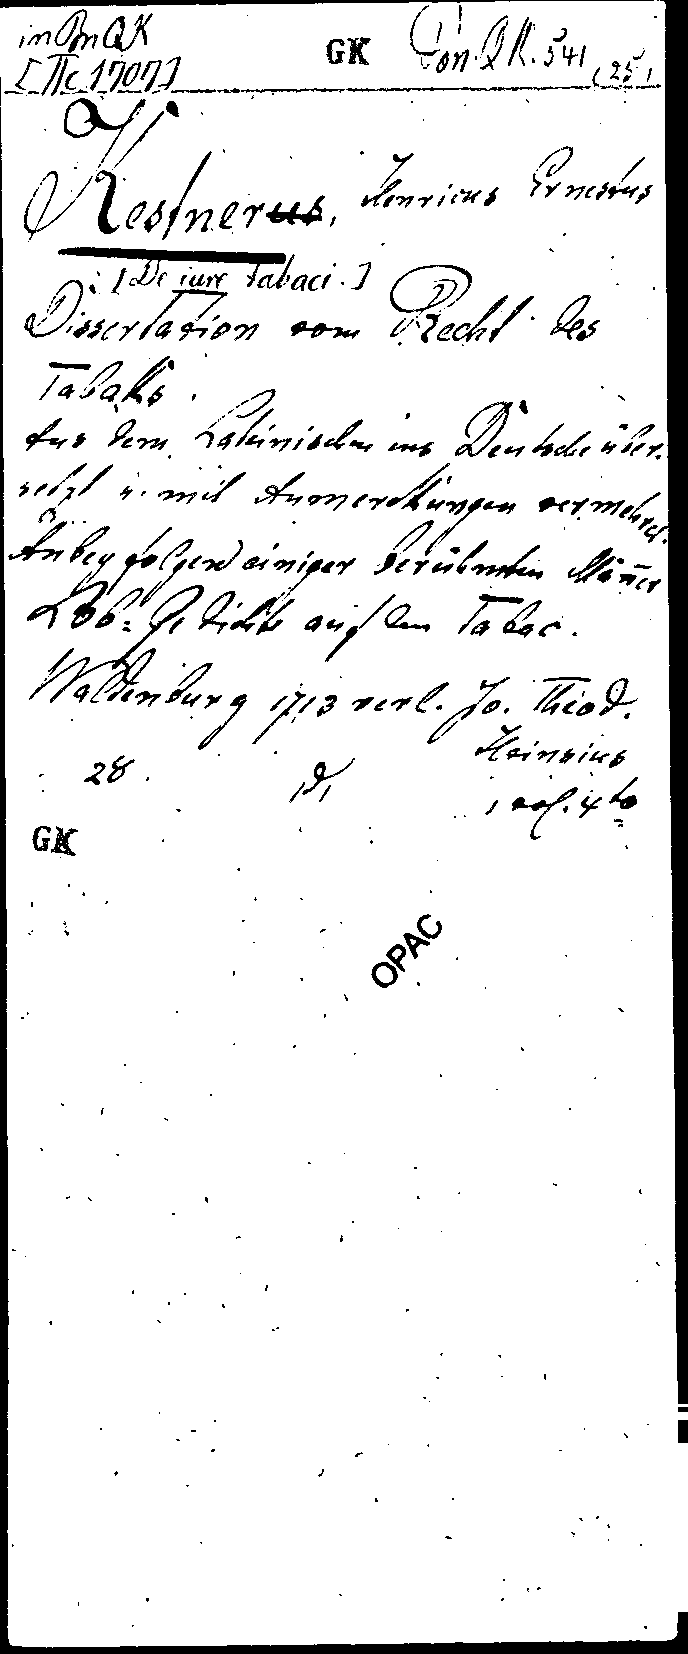 in Pon QK
[IIc 1707]
GK Pon. QK. 541, (25)
Kestnerus, Henricus Ernestus
: [De iure Tabaci.]
Dissertation vom Recht des
Tabaks.
Aus dem Lateinischen ins Deutsche über-
setzt u. mit Anmerckungen vermehret.
Anbey folgen einiger berühmten Mäner
Lob-Gedichte auf den Tabac.
Waldenburg 1713 verl. Jo. Theod.
Heinsius
28.
1 vol. 4to
GK
OPAC